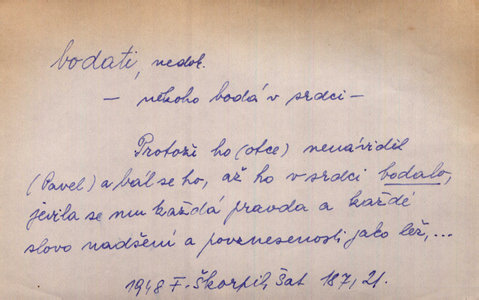 bodati, nedok.
— někoho bodá v srdci —
Protože ho (otce) nenáviděl
(Pavel) a bál se ho, až ho v srdci bodalo,
jevila se mu každá pravda a každé
slovo nadšení a povznesenosti jako lež,...
1948 F. Škorpil, Šat 187, 21.